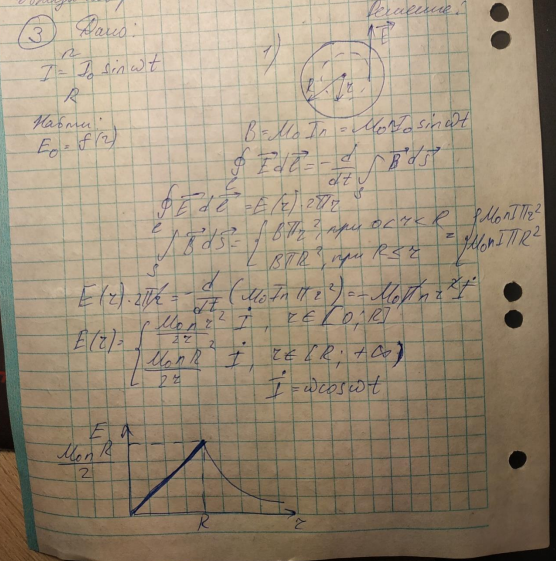 Решение:
③ Дано:
n
I = I₀ sin ωt
R
Найти:
E₀ = f(r)
1)
E⃗
R
r
B = μ₀ I n = μ₀ n I₀ sin ωt
∮ E⃗ dℓ⃗ = - d/dt ∫ B⃗ dS⃗
∮ E⃗ dℓ⃗ = E(r) · 2πr
∫ B⃗ dS⃗ = { Bπr², при 0<r<R = { μ₀nIπr²
BπR², при R≤r μ₀nIπR²
E(r) · 2πr = - d/dt (μ₀ I n π r²) = - μ₀ π n r² İ
E(r) = { μ₀ n r²/2r İ, r∈[0; R]
μ₀ n R²/2r İ, r∈[R; +∞)
İ = ω cos ωt
E
μ₀ n R/2
R
r